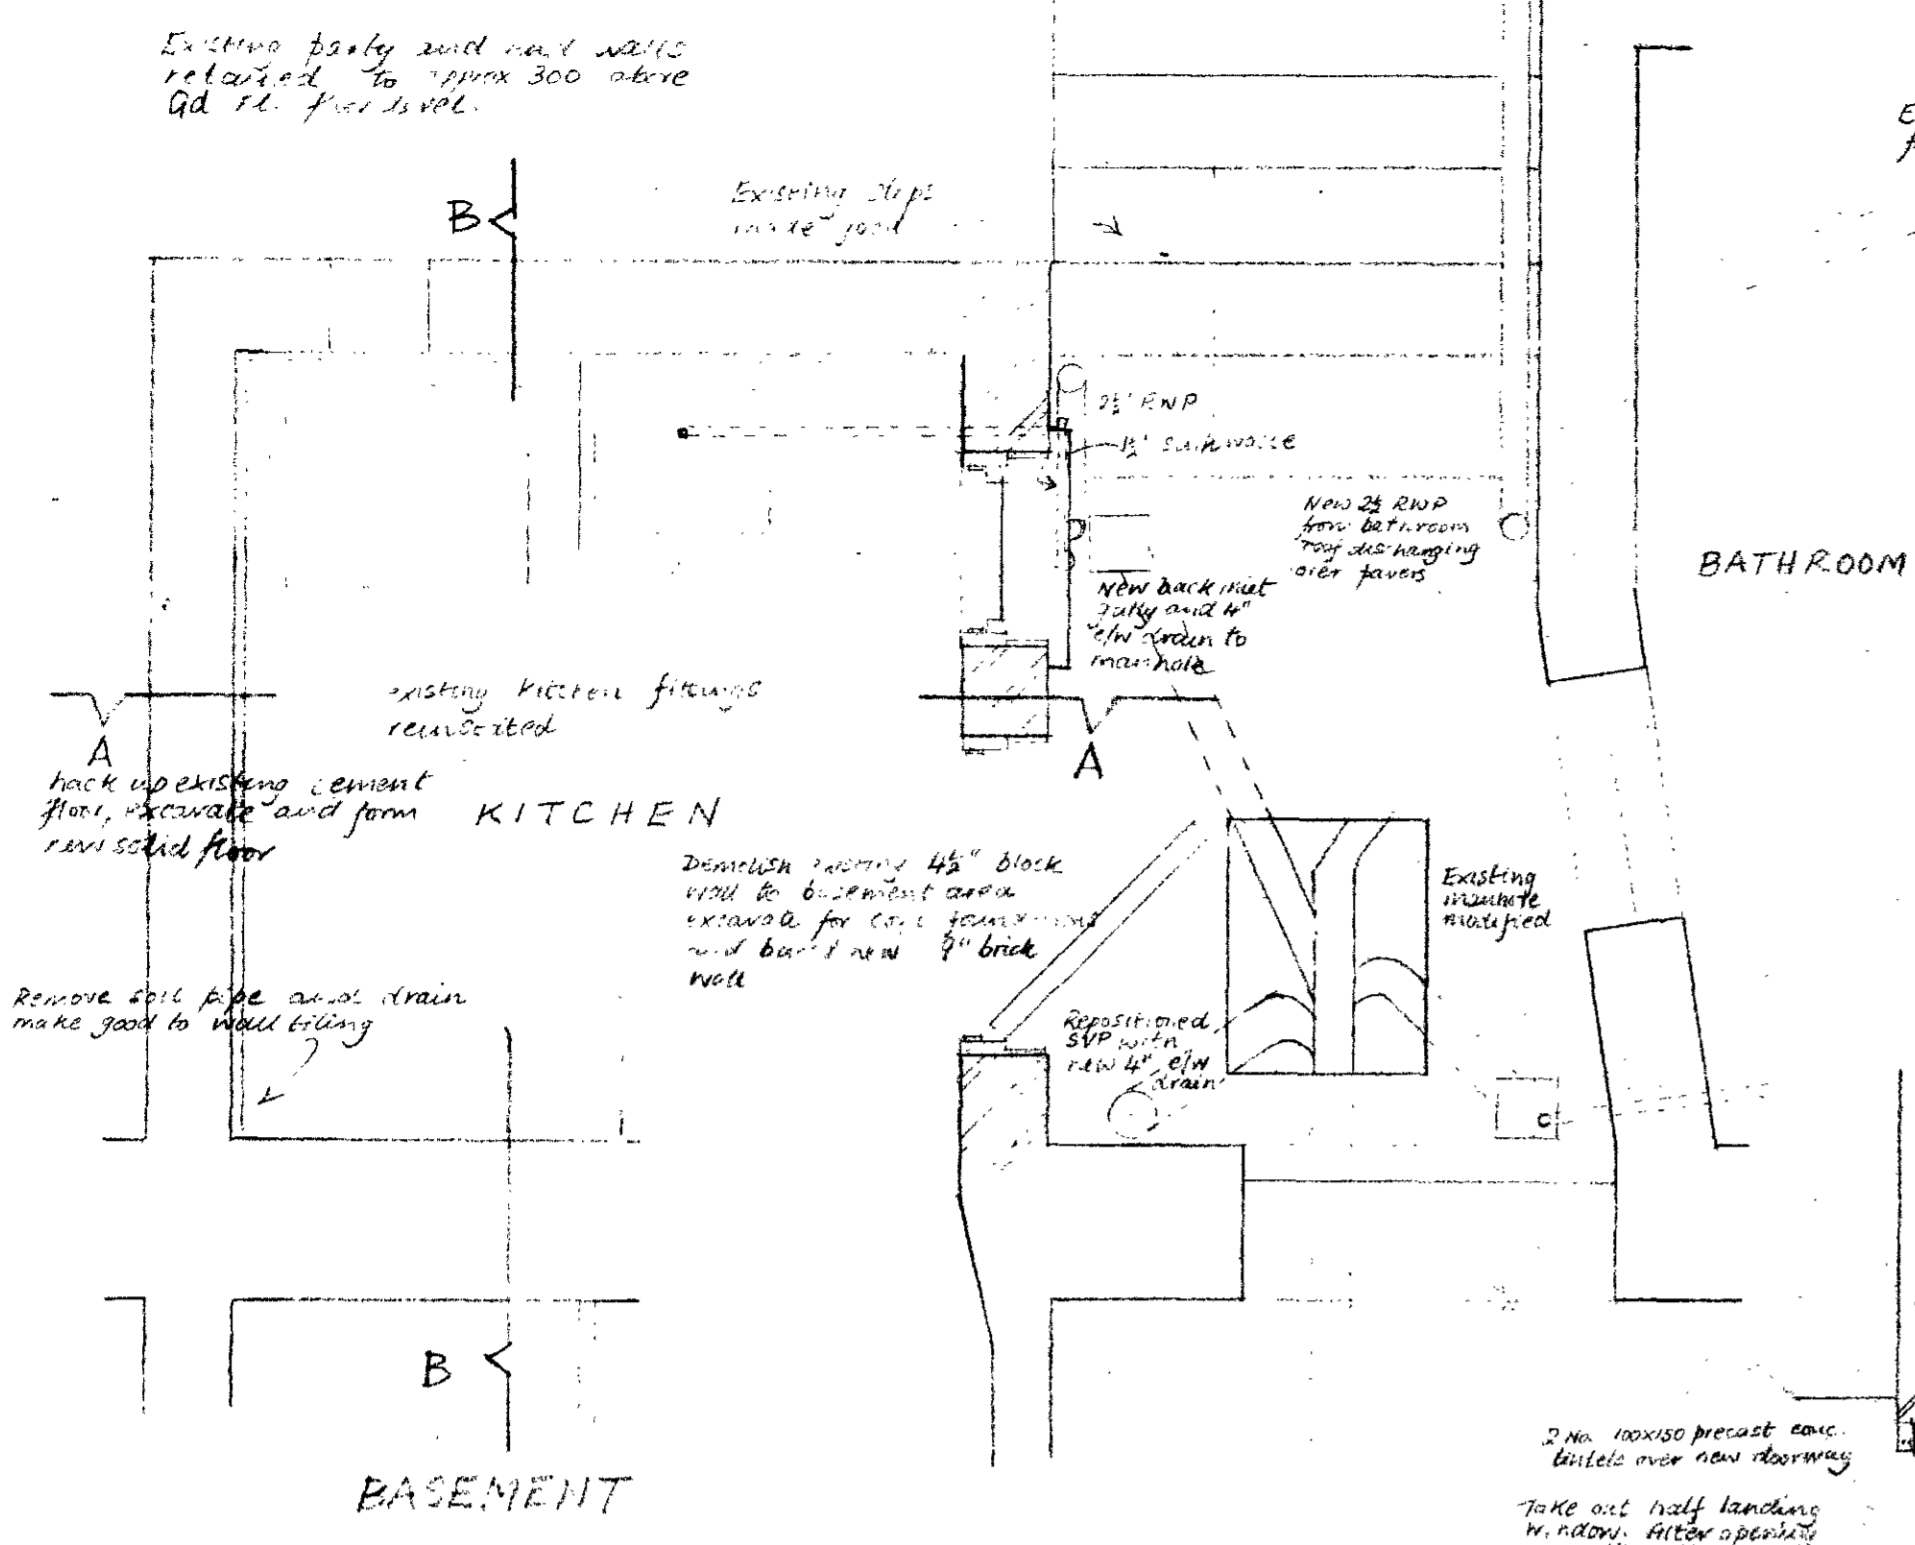 Existing party and walls
retained to approx 300 above
Gd fl. floor level.
B
Existing steps
made good
2½" RWP
1½" sink waste
New 2½ RWP
from bathroom
roof discharging
over pavers
BATHROOM
New back inlet
gully and 4"
e/w drain to
manhole
existing kitchen fittings
reinstated
A
A
hack up existing cement
floor, excavate and form
new solid floor
KITCHEN
Demolish existing 4½" block
wall to basement area
excavate for conc foundations
and build new 9" brick
wall
Existing
manhole
modified
Remove soil pipe and drain
make good to wall tiling
Repositioned
SVP with
new 4" e/w
drain
B
BASEMENT
2 No. 100x150 precast conc.
lintels over new doorway
Take out half landing
window. Alter opening